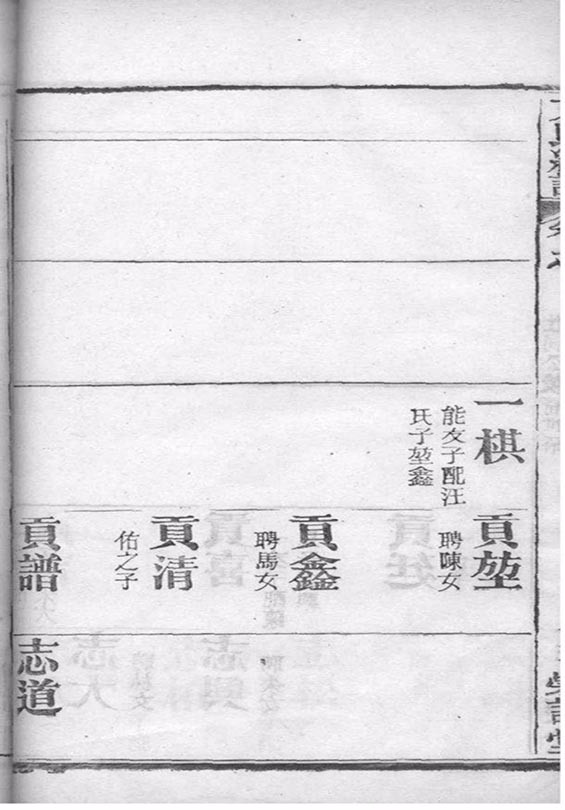 一棋
能友子配汪
氏子堃鑫
貢堃
聘陳女
貢鑫
聘馬女
貢清
佑之子
貢譜
志道